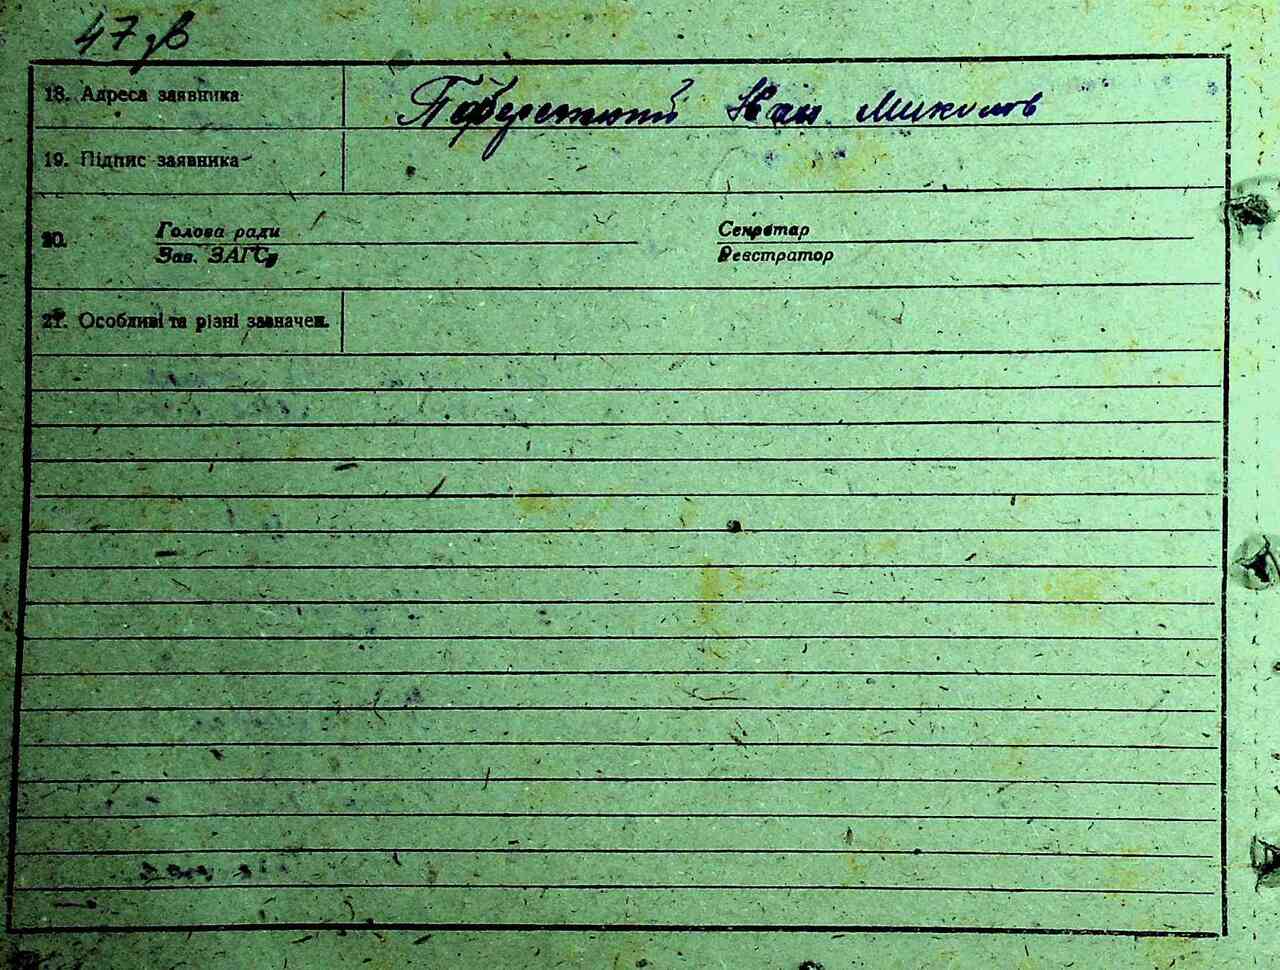 47 зв
18. Адреса заявника Иван Миколов
19. Підпис заявника
20. Голова ради Секретар
Зав. ЗАГСу Реєстратор
21. Особливі та різні зазначен.